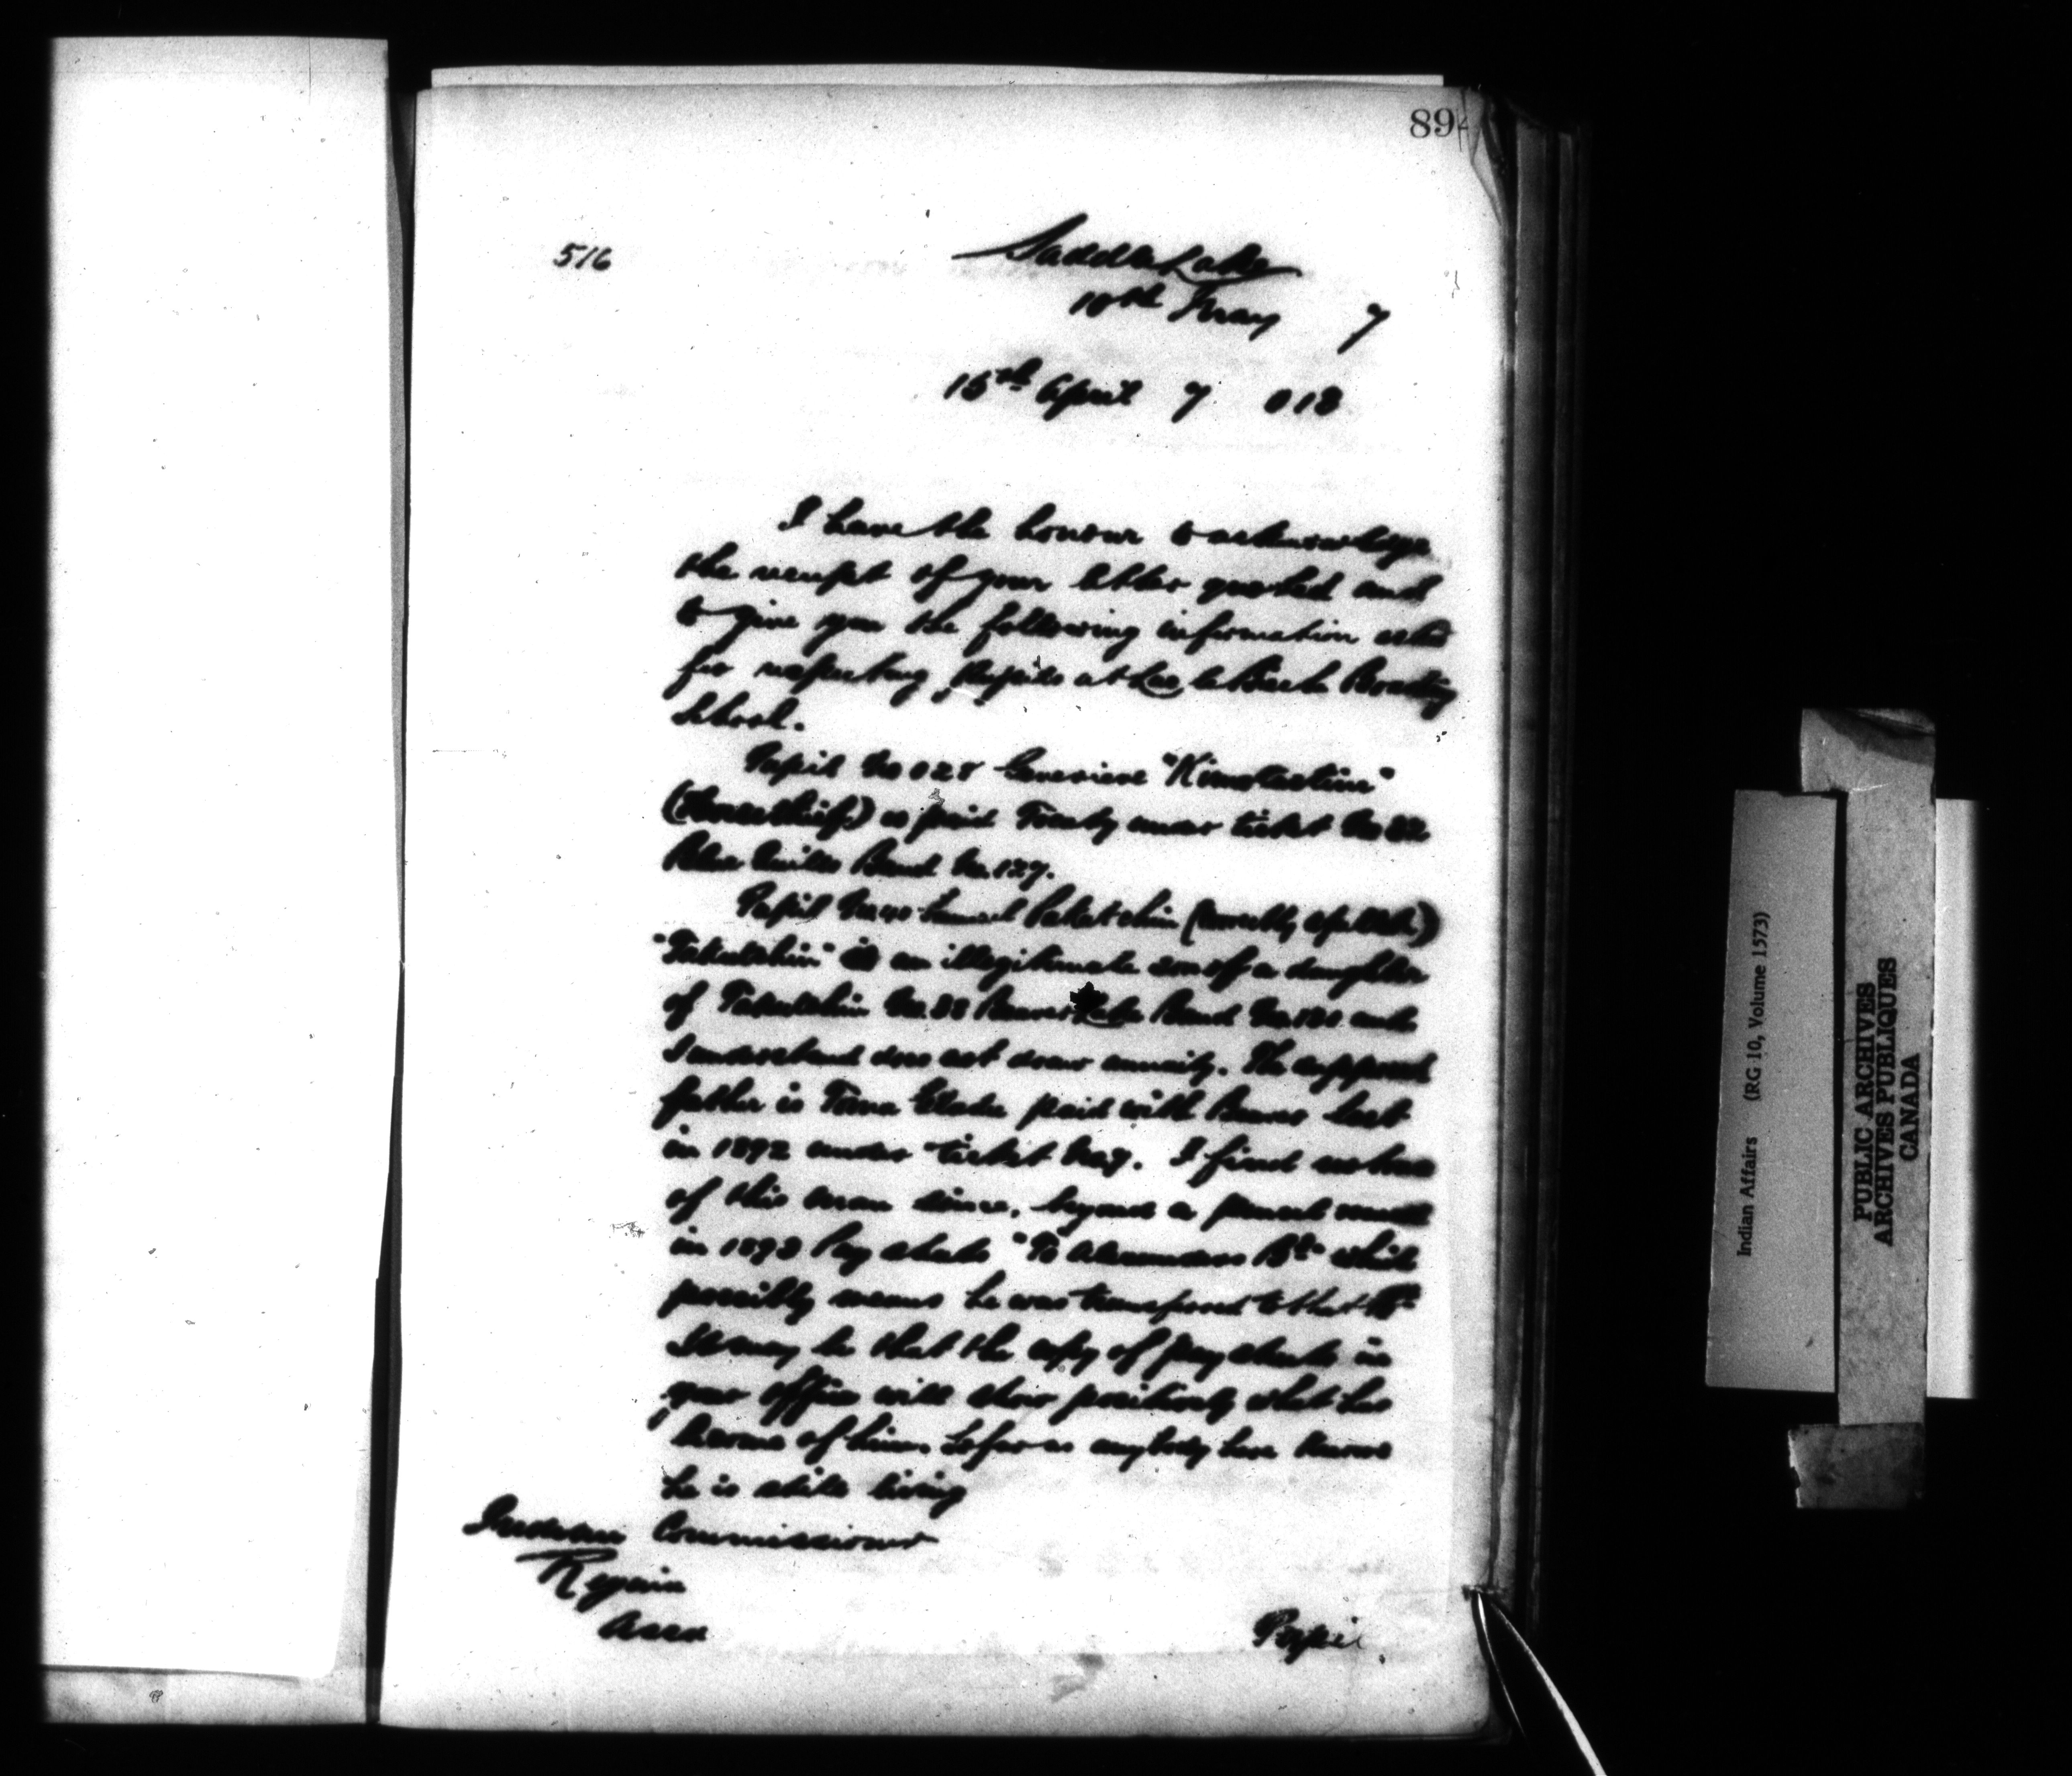 89
516
Saddle Lake
10th May 7
15th April 7 018
I have the honour to acknowledge
the receipt of your letter quoted and
to give you the following information
respecting Pupils at Lac la Biche Boarding
School.
Pupil No 027 Genevieve
is paid Treaty under ticket No 82
Blue Quills Band No. 127.
Pupil No 40
is an illegitimate son of a daughter
of No. 38 Beaver Lake Band and
I understand does not draw annuity. The supposed
father is paid with Band last
in 1892 under ticket No 7. I find no trace
of this man since, beyond a pencil
in 1893 Pay sheets "To Alexanders Bd" which
possibly means he was transferred to that Bd
It may be that the copy of pay sheets in
your office will show positively what has
become of him. So far as anybody here knows
he is still living
Indian Commissioner
Regina
Assa
Pupil
Indian Affairs (RG 10, Volume 1573)
PUBLIC ARCHIVES
ARCHIVES PUBLIQUES
CANADA